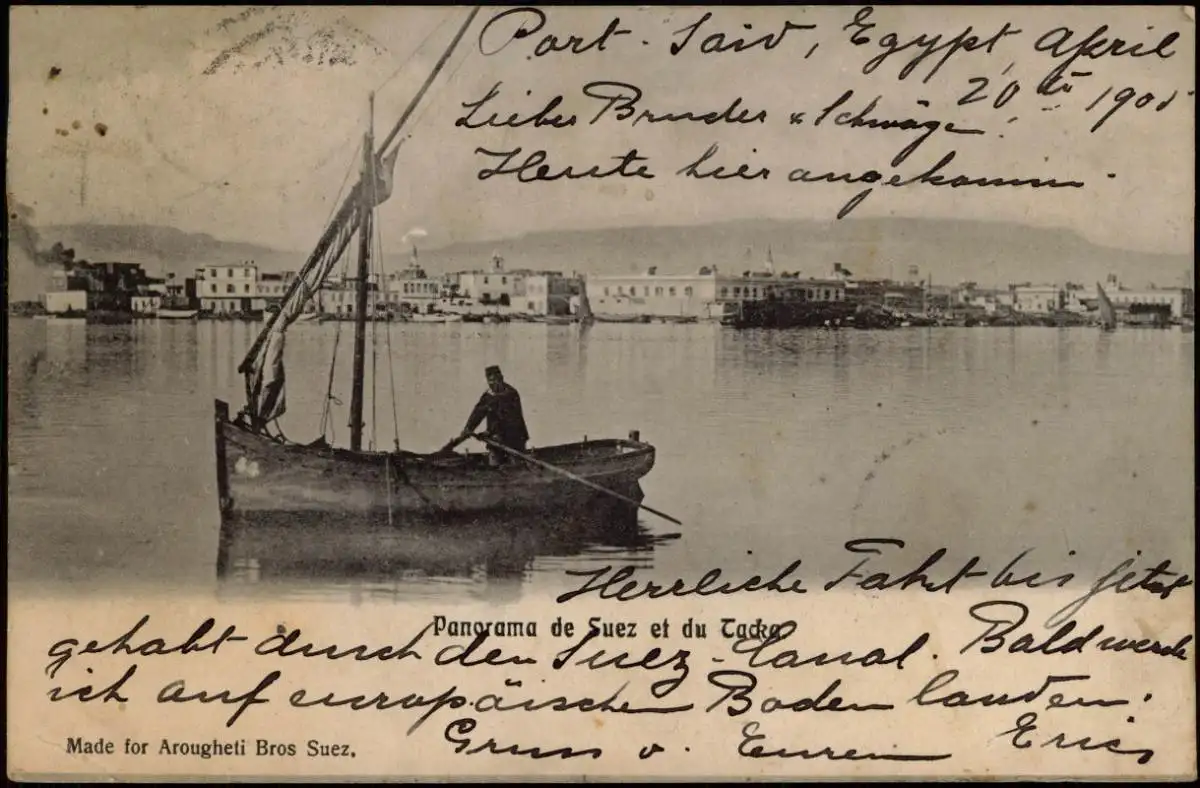 Port-Said, Egypt, April
20ten 190
Lieber Bruder u Schwäge!
Heute hier angekomm.
Herrliche Fahrt bis jetzt
Panorama de Suez et du Tacka
gehabt durch den Suez-Canal. Bald werde
ich auf europäischen Boden landen.
Made for Arougheti Bros Suez.
Gruss v. Eurem Eric